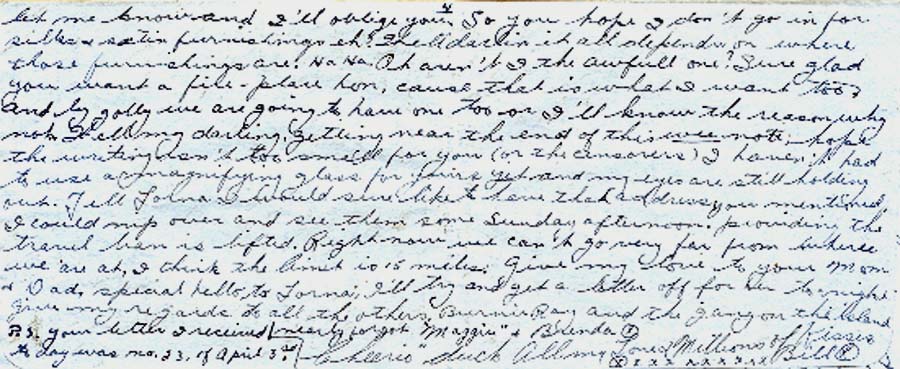 4
let me know and I'll oblige you. So you hope I don't go in for
silks & satin furnishings eh? Well darlin it all depends on where
those furnishings are! Ha Ha. Oh aren't I the awfull one? Sure glad
you want a fire-place hon, cause that is what I want too,
and by golly we are going to have one too or I'll know the reason why
not. Well my darling getting near the end of this wee note, hope
the writing isn't too small for you (or the censors) I haven't had
to use a magnifying glass for yours yet and my eyes are still holding
out. Tell Lorna I would sure like to have that address you mentioned,
I could nip over and see them some Sunday afternoon. providing the
travel ban is lifted. Right now we can't go very far from where
we are at, I think the limit is 15 miles. Give my love to your Mom
& Dad, special hello to Lorna, I'll try and get a letter off for her tonight.
Give my regards to all the others, Burnie Ray and the gang on the Island
P.S. your letter I received nearly forgot "Maggie" & Brenda
to day was no. 33, of April 3rd Cheerio Duck All my Love & Millions of Kisses
x x x x x x x x Bill